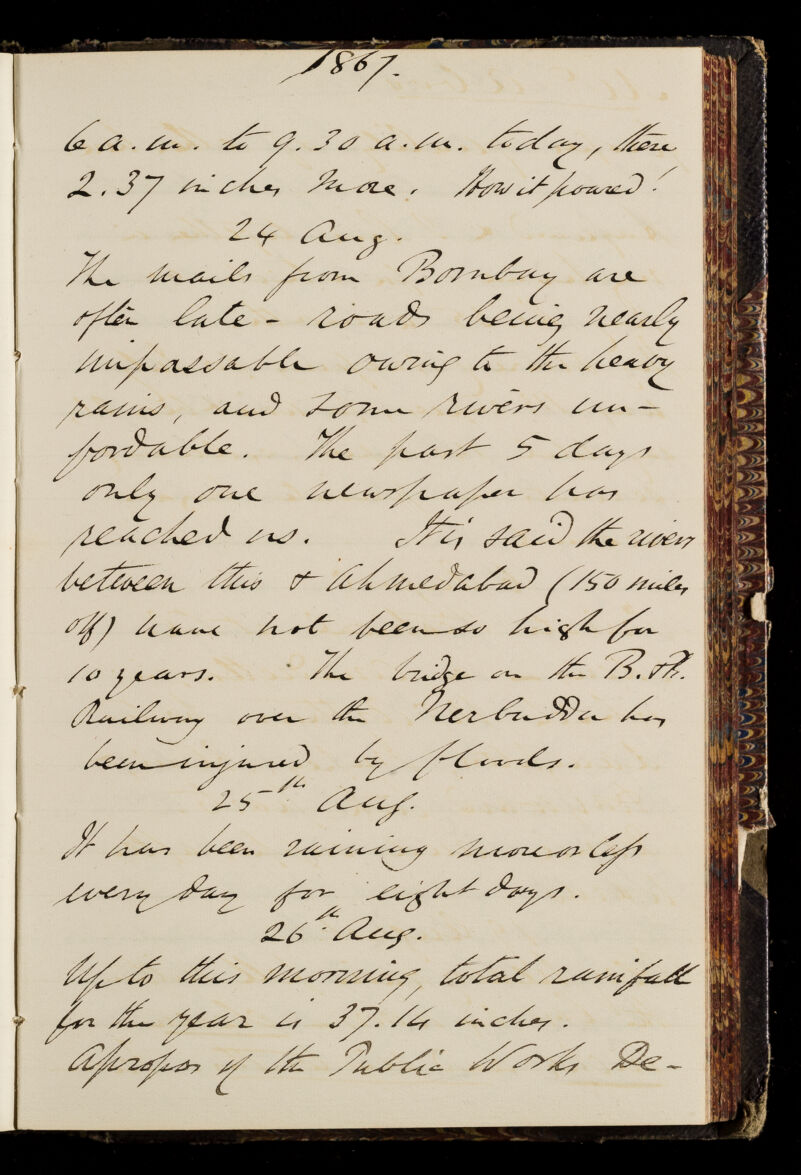 1867.
6 a.m. to 9.30 a.m. today, there
2.37 inches more. How it poured!
24 Aug.
The mails from Bombay are
often late - roads being nearly
impassable owing to the heavy
rains, and some rivers un-
fordable. The past 5 days
only one newspaper has
reached us. It is said the rivers
between this & Ahmedabad (150 miles
off) have not been so high for
10 years. The bridge on the B. &
Railway over the Nerbudda has
been injured by floods.
25th Aug.
It has been raining more or less
every day for eight days.
26th Aug.
Up to this morning, total rainfall
for the year is 37.14 inches.
Apropos of the Public Works De-